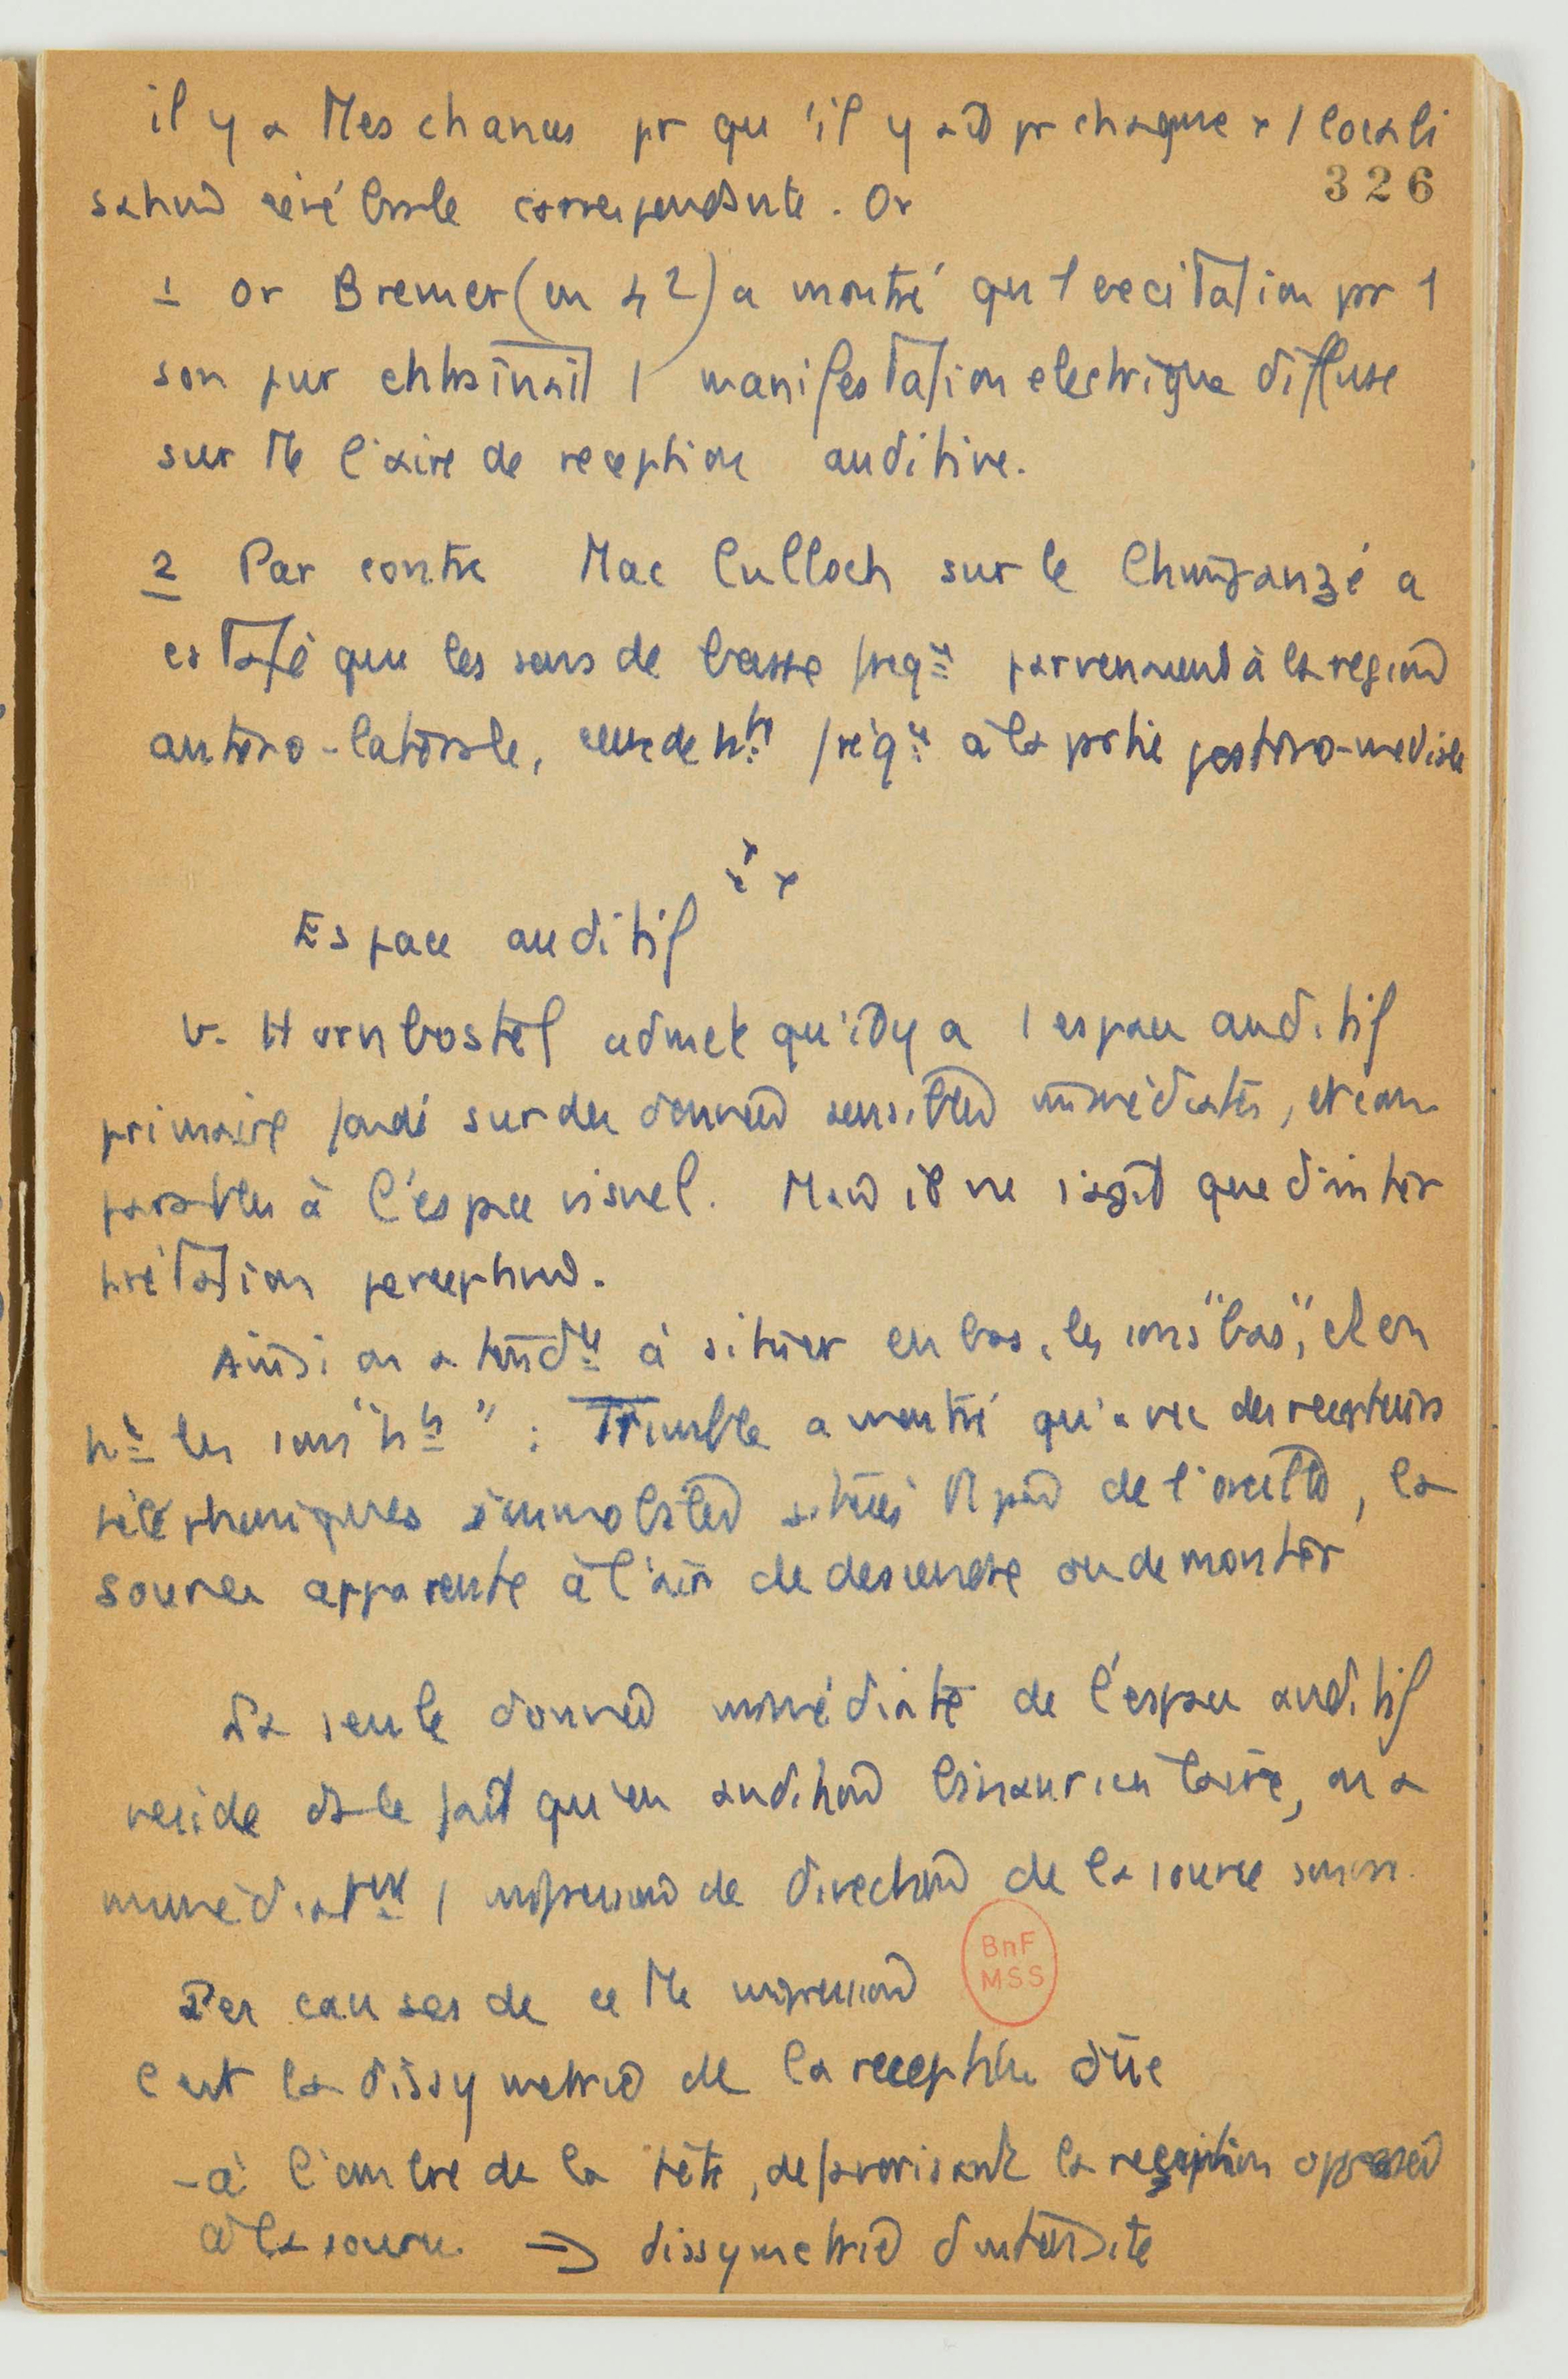 il y a Ttes chances pr qu'il y ait pr chaque x 1 locali
326
sation cérébrale correspondante. Or
1 or Bremer (en 42) a montré qu 1 excitation pr 1
son pur entrainait 1 manifestation electrique diffuse
sur Tte l'aire de reception auditive.
2 Par contre Mac Culloch sur le Chimpanzé a
cstaté que les sons de basse freqce parvenaient à la region
antéro-latérale, ceux de hte fréqce à la partie postéro-mediale
x x x
Espace auditif
v. Hornbostel admet qu'il y a 1 espace auditif
primaire fondé sur des données sensibles immédiates, et com
parables à l'espace visuel. Mais il ne s'agit que d'inter
prétation perceptive.
Ainsi on a tendce à situer en bas, les sons "bas", et en
ht les sons "hts" : Trimble a montré qu'avec des recepteurs
téléphoniques immobiles situés près de l'oreille, la
source apparente à l'air de descendre ou de monter
La seule donnée immédiate de l'espace auditif
reside ds le fait qu'en audition binauriculaire, on a
immédiatemt 1 impression de direction de la source sonore.
Les causes de cette impression
C'est la dissymetrie de la reception dûe
- à l'ombre de la tête, défavorisant la reception opposée
à la source → dissymetrie d'intensité
BnF
MSS